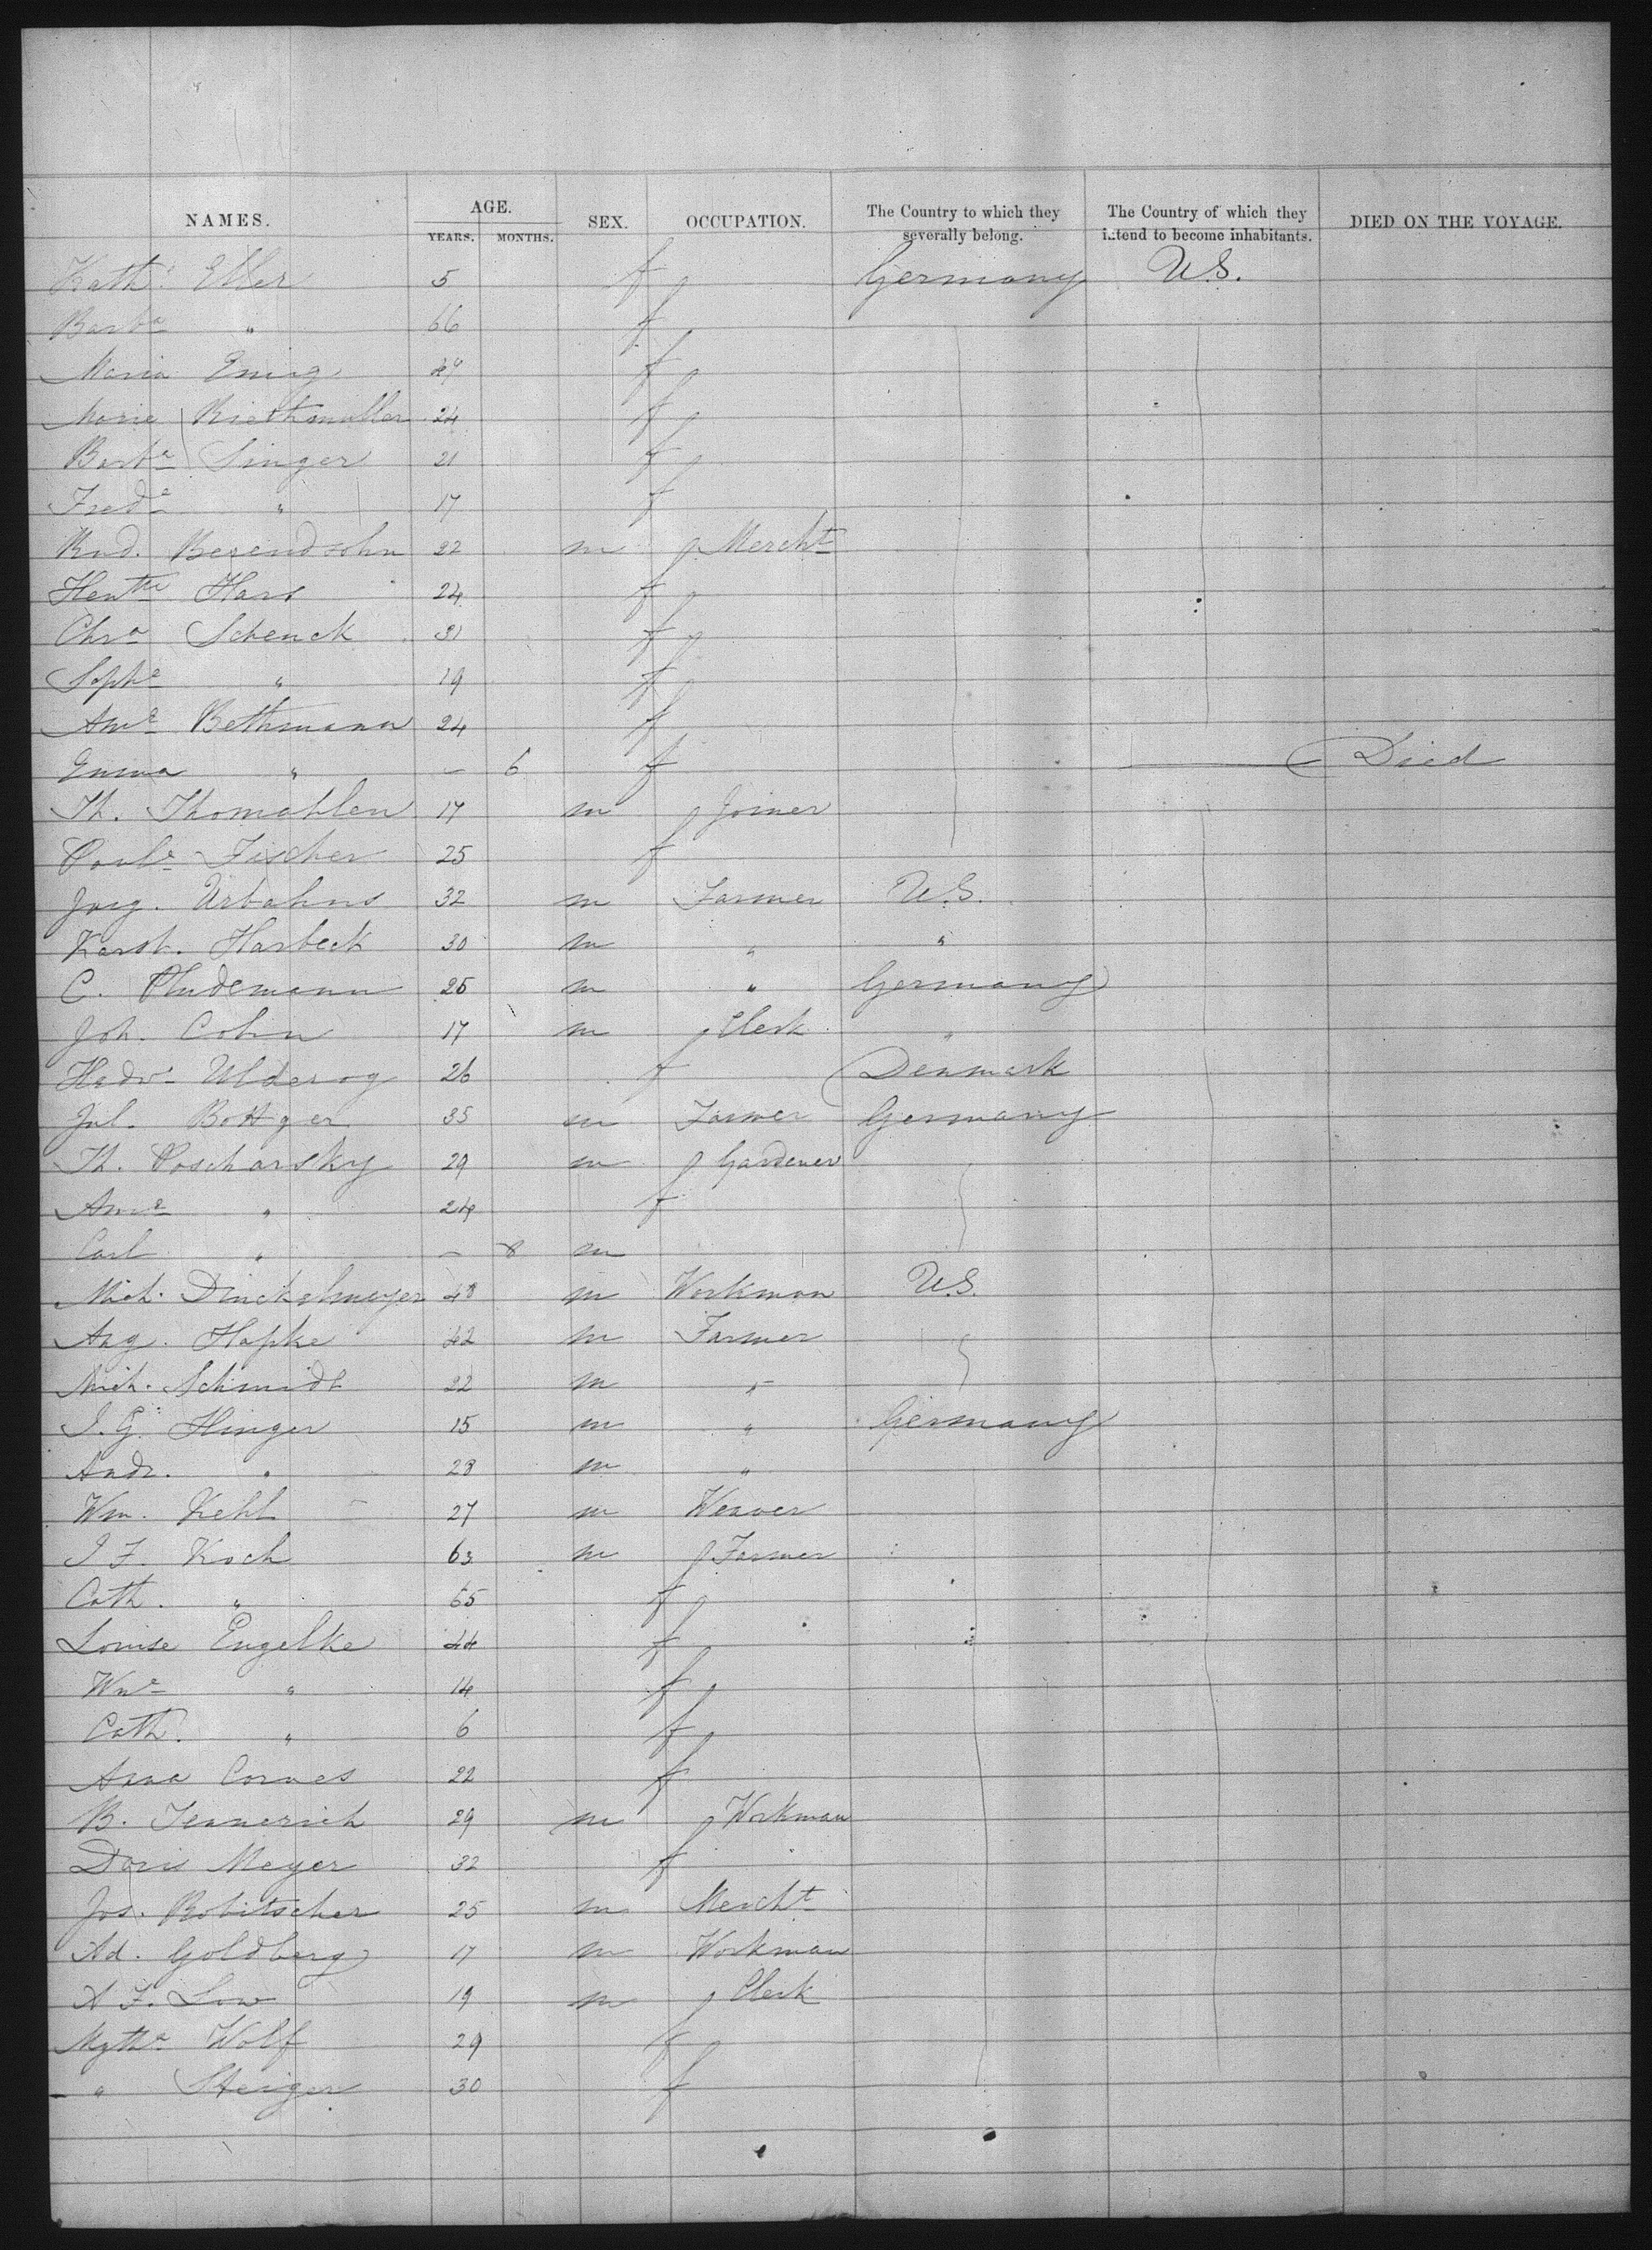 NAMES. AGE. SEX. OCCUPATION. The Country to which they severally belong. The Country of which they intend to become inhabitants. DIED ON THE VOYAGE.
YEARS. MONTHS.
Kath. Eller 5 f Germany U.S.
Barba " 66 f
Maria Emig f
Marie Riethmuller 24 f
Barba Singer 21 f
Freda " 17 f
Rud. Berendsohn 22 m Mercht
Hentte Hars 24 f
Chra Schenck 31 f
Sophe " 19 f
Ame Bethmann 24 f
Emma " – 6 f Died
Th. Thomahlen 17 m Joiner
Paule Fischer 25 f
Jorg. Urbahns 32 m Farmer U.S.
Karst. Harbeck 30 m " "
C. Pludemann 25 m " Germany
Joh. Cohn 17 m Clerk "
Hedw. Ulderog 26 f Denmark
Jul. Bottger 35 m Farmer Germany
Th. Poscharsky 29 m Gardener
Ame " 24 f
Carl " – 8 m
Mich. Dinckelmeyer 48 m Workman U.S.
Aug. Hapke 42 m Farmer
Mich. Schmidt 22 m "
J. G. Hinger 15 m " Germany
Andr. " 28 m "
Wm. Kehl 27 m Weaver
J F. Koch 63 m Farmer
Cath. " 65 f
Louise Engelke 44 f
Wme " 14 f
Cath. " 6 f
Anna Cornes 22 f
B. Tennerich 29 m Workman
Doris Meyer 32 f
Jos. Robitscher 25 m Mercht
Ad. Goldberg 17 m Workman
A F. Low 19 m Clerk
Mgtha Wolf 29 f
" Steiger 30 f